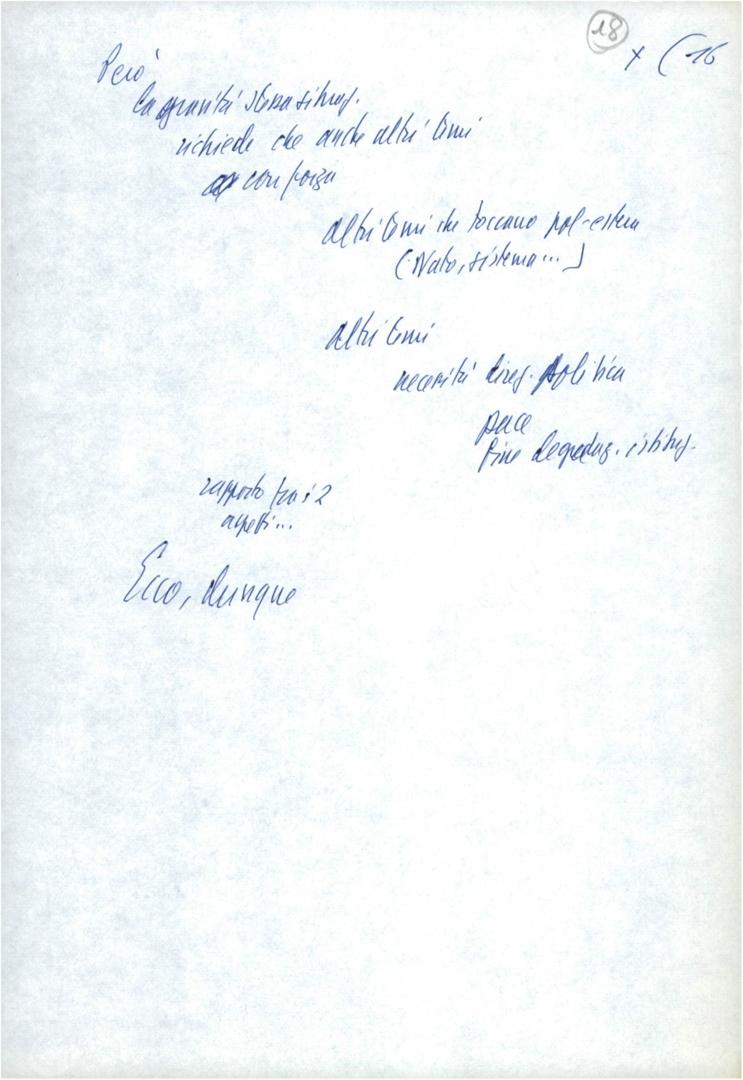 18
x (16
Però
la gravità stessa situaz.
richiede che anche altri temi
con forza
altri temi che toccano pol-estera
(Nato, sistema...)
altri temi
necessità direz. politica
pace
fine degradaz. istituz.
rapporto tra i 2
aspetti...
Ecco, dunque